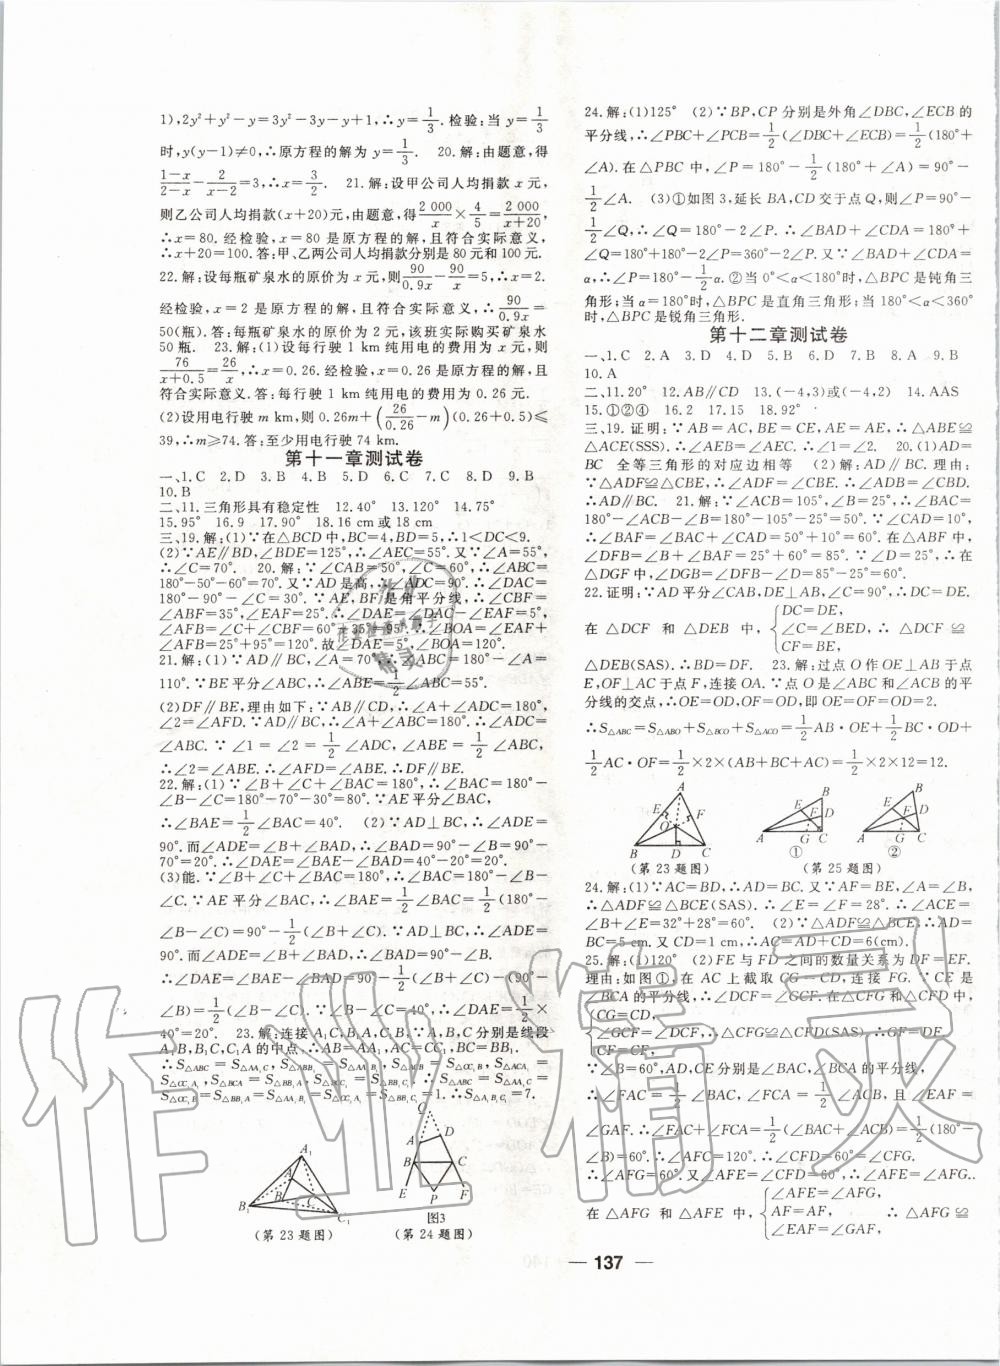 1),2y²+y²-y=3y²-3y-y+1,∴y=1/3.检验:当y=1/3
时,y(y-1)≠0,∴原方程的解为y=1/3. 20.解:由题意,得
(1-x)/(2-x)-2/(x-2)=3,∴x=3/2. 21.解:设甲公司人均捐款x元,
则乙公司人均捐款(x+20)元,由题意,得2 000/x×4/5=2 000/(x+20),
∴x=80.经检验,x=80是原方程的解,且符合实际意义,
∴x+20=100.答:甲、乙两公司人均捐款分别是80元和100元.
22.解:设每瓶矿泉水的原价为x元,则90/0.9x-90/x=5,∴x=2.
经检验,x=2是原方程的解,且符合实际意义,∴90/0.9x=
50(瓶).答:每瓶矿泉水的原价为2元,该班实际购买矿泉水
50瓶. 23.解:(1)设每行驶1 km纯用电的费用为x元,则
76/(x+0.5)=26/x,∴x=0.26.经检验,x=0.26是原方程的解,且
符合实际意义.答:每行驶1 km纯用电的费用为0.26元.
(2)设用电行驶m km,则0.26m+(26/0.26-m)(0.26+0.5)≤
39,∴m≥74.答:至少用电行驶74 km.
第十一章测试卷
一、1.C 2.D 3.B 4.B 5.D 6.C 7.B 8.D 9.B
10.B
二、11.三角形具有稳定性 12.40° 13.120° 14.75°
15.95° 16.9 17.90° 18.16 cm或18 cm
三、19.解:(1)∵在△BCD中,BC=4,BD=5,∴1<DC<9.
(2)∵AE∥BD,∠BDE=125°,∴∠AEC=55°.又∵∠A=55°,
∴∠C=70°. 20.解:∵∠CAB=50°,∠C=60°,∴∠ABC=
180°-50°-60°=70°.又∵AD是高,∴∠ADC=90°.∴∠DAC=
180°-90°-∠C=30°.∵AE,BF是角平分线,∴∠CBF=
∠ABF=35°,∠EAF=25°.∴∠DAE=∠DAC-∠EAF=5°,
∠AFB=∠C+∠CBF=60°+35°=95°.∴∠BOA=∠EAF+
∠AFB=25°+95°=120°.故∠DAE=5°,∠BOA=120°.
21.解:(1)∵AD∥BC,∠A=70°,∴∠ABC=180°-∠A=
110°.∵BE平分∠ABC,∴∠ABE=1/2∠ABC=55°.
(2)DF∥BE,理由如下:∵AB∥CD,∴∠A+∠ADC=180°,
∠2=∠AFD.∵AD∥BC,∴∠A+∠ABC=180°.∴∠ADC=
∠ABC.∵∠1=∠2=1/2∠ADC,∠ABE=1/2∠ABC,
∴∠2=∠ABE.∴∠AFD=∠ABE.∴DF∥BE.
22.解:(1)∵∠B+∠C+∠BAC=180°,∴∠BAC=180°-
∠B-∠C=180°-70°-30°=80°.∵AE平分∠BAC,
∴∠BAE=1/2∠BAC=40°. (2)∵AD⊥BC,∴∠ADE=
90°.而∠ADE=∠B+∠BAD,∴∠BAD=90°-∠B=90°-
70°=20°.∴∠DAE=∠BAE-∠BAD=40°-20°=20°.
(3)能.∵∠B+∠C+∠BAC=180°,∴∠BAC=180°-∠B-
∠C.∵AE平分∠BAC,∴∠BAE=1/2∠BAC=1/2(180°-
∠B-∠C)=90°-1/2(∠B+∠C).∵AD⊥BC,∴∠ADE=
90°.而∠ADE=∠B+∠BAD,∴∠BAD=90°-∠B.
∴∠DAE=∠BAE-∠BAD=90°-1/2(∠B+∠C)-(90°-
∠B)=1/2(∠B-∠C).∵∠B-∠C=40°,∴∠DAE=1/2×
40°=20°. 23.解:连接A₁C,B₁A,C₁B.∵A,B,C分别是线段
A₁B,B₁C,C₁A的中点,∴AB=AA₁,AC=CC₁,BC=BB₁.
∴S△ABC=S△AA₁C,S△ABC=S△CC₁B,
1.∴S△A₁B₁C₁=7.
(第23题图)
图3
(第24题图)
24.解:(1)125° (2)∵BP,CP分别是外角∠DBC,∠ECB的
平分线,∴∠PBC+∠PCB=1/2(∠DBC+∠ECB)=1/2(180°+
∠A).在△PBC中,∠P=180°-1/2(180°+∠A)=90°-
1/2∠A. (3)①如图3,延长BA,CD交于点Q,则∠P=90°-
1/2∠Q,∴∠Q=180°-2∠P.∴∠BAD+∠CDA=180°+
∠Q=180°+180°-2∠P=360°-2∠P.又∵∠BAD+∠CDA=
α,∴∠P=180°-1/2α.②当0°<α<180°时,△BPC是钝角三
角形;当α=180°时,△BPC是直角三角形;当180°<α<360°
时,△BPC是锐角三角形.
第十二章测试卷
一、1.C 2.A 3.D 4.D 5.B 6.D 7.B 8.A 9.B
10.A
二、11.20° 12.AB∥CD 13.(-4,3)或(-4,2) 14.AAS
15.①②④ 16.2 17.15 18.92°
三、19.证明:∵AB=AC,BE=CE,AE=AE,∴△ABE≌
△ACE(SSS).∴∠AEB=∠AEC.∴∠1=∠2. 20.(1)AD=
BC 全等三角形的对应边相等 (2)解:AD∥BC.理由:
∵△ADF≌△CBE,∴∠ADF=∠CBE.∴∠ADB=∠CBD.
∴AD∥BC. 21.解:∵∠ACB=105°,∠B=25°,∴∠BAC=
180°-∠ACB-∠B=180°-105°-25°=50°.∵∠CAD=10°,
∴∠BAF=∠BAC+∠CAD=50°+10°=60°.在△ABF中,
∴∠DFB=∠B+∠BAF=25°+60°=85°.∵∠D=25°,∴在
△DGF中,∠DGB=∠DFB-∠D=85°-25°=60°.
22.证明:∵AD平分∠CAB,DE⊥AB,∠C=90°,∴DC=DE.
在△DCF和△DEB中,{DC=DE, ∠C=∠BED, CF=BE, ∴△DCF≌
△DEB(SAS).∴BD=DF. 23.解:过点O作OE⊥AB于点
E,OF⊥AC于点F,连接OA.∵点O是∠ABC和∠ACB的平
分线的交点,∴OE=OD,OF=OD,即OE=OF=OD=2.
∴S△ABC=S△ABO+S△BCO+S△ACO=1/2AB·OE+1/2BC·OD+
1/2AC·OF=1/2×2×(AB+BC+AC)=1/2×2×12=12.
(第23题图)
①
②
(第25题图)
24.解:(1)∵AC=BD,∴AD=BC.又∵AF=BE,∠A=∠B,
∴△ADF≌△BCE(SAS).∴∠E=∠F=28°.∴∠ACE=
∠B+∠E=32°+28°=60°. (2)∵△ADF≌△BCE,∴AD=
BC=5 cm.又CD=1 cm,∴AC=AD+CD=6(cm).
25.解:(1)120° (2)FE与FD之间的数量关系为FE=FD.
理由:如图①,在AC上截取CG=CD,连接FG.∵CE是
∠BCA的平分线,∴∠DCF=∠GCF.在△CFG和△CFD中,
{CG=CD, ∠GCF=∠DCF, CF=CF, ∴△CFG≌△CFD(SAS).∴GF=DF.
∵∠B=60°,AD,CE分别是∠BAC,∠BCA的平分线,
∴∠FAC=1/2∠BAC,∠FCA=1/2∠ACB,且∠EAF=
∠GAF.∴∠FAC+∠FCA=1/2(∠BAC+∠ACB)=1/2(180°-
∠B)=60°.∴∠AFC=120°.∴∠CFD=60°=∠CFG.
∴∠AFG=60°.又∵∠AFE=∠CFD=60°,∴∠AFE=∠AFG.
在△AFG和△AFE中,{∠AFE=∠AFG, AF=AF, ∠EAF=∠GAF, ∴△AFG≌
— 137 —
作业精灵